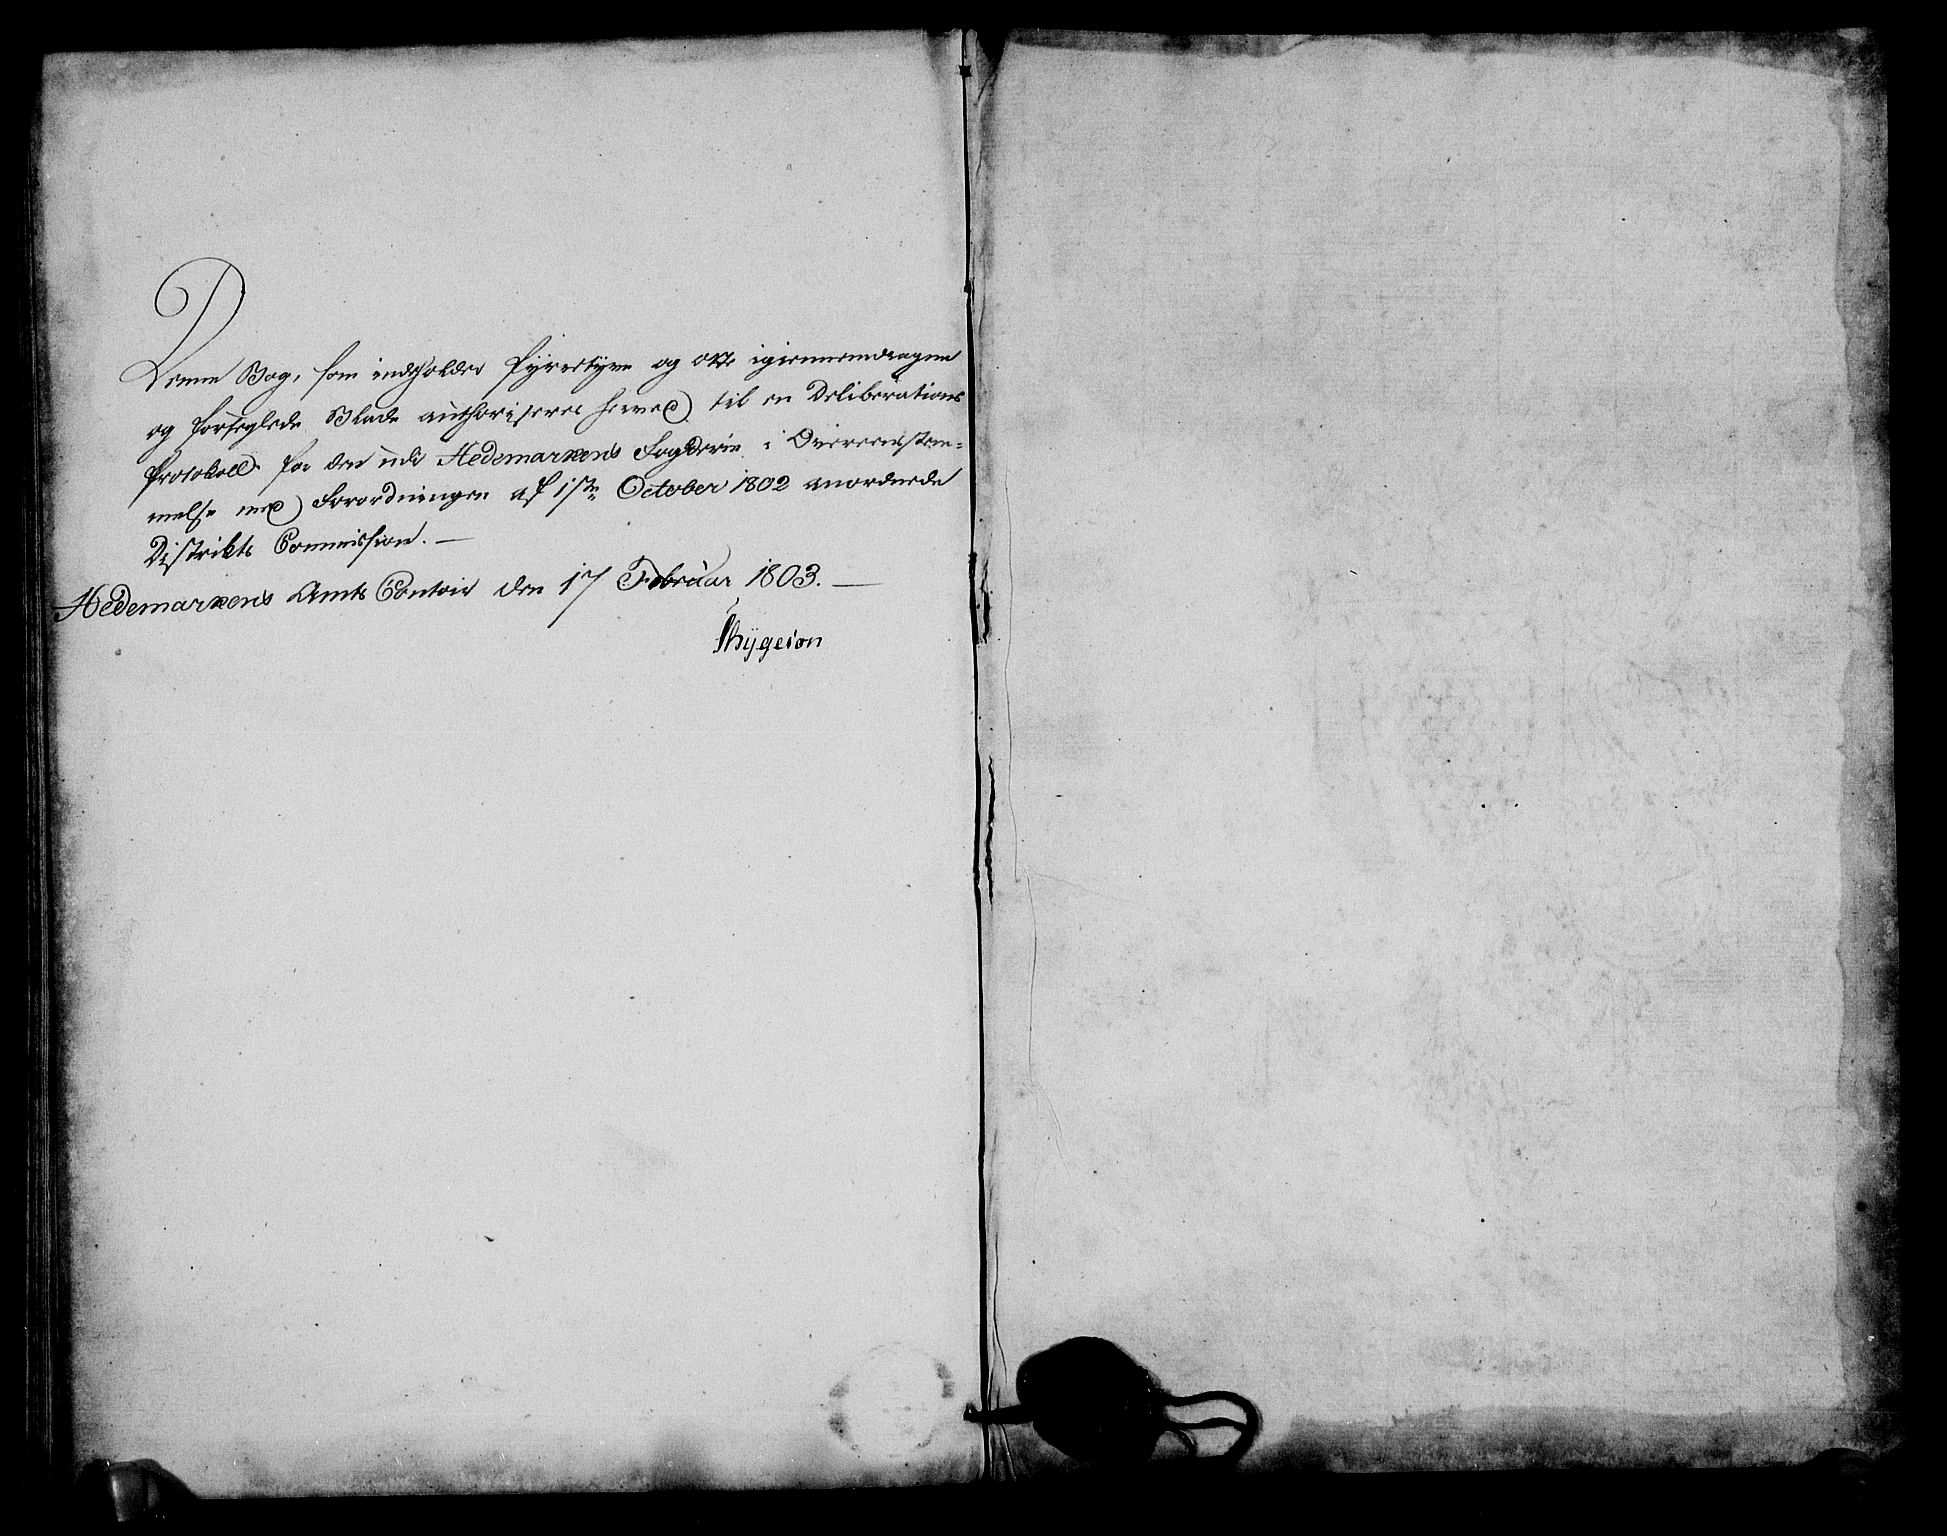 Denne Bog, som indeholder fÿrretÿve og otte igiennemdragne
og forseglede Blade authoriseres herved til en Deliberations
Protokoll for den udi Hedemarkens Fogderie i Overeenstem=
melse med Forordningen af 1ste October 1802 anordnede
Distrikts Commission. —
Hedemarkens Amts Contoir den 17 Februar 1803. —
Thÿgeson